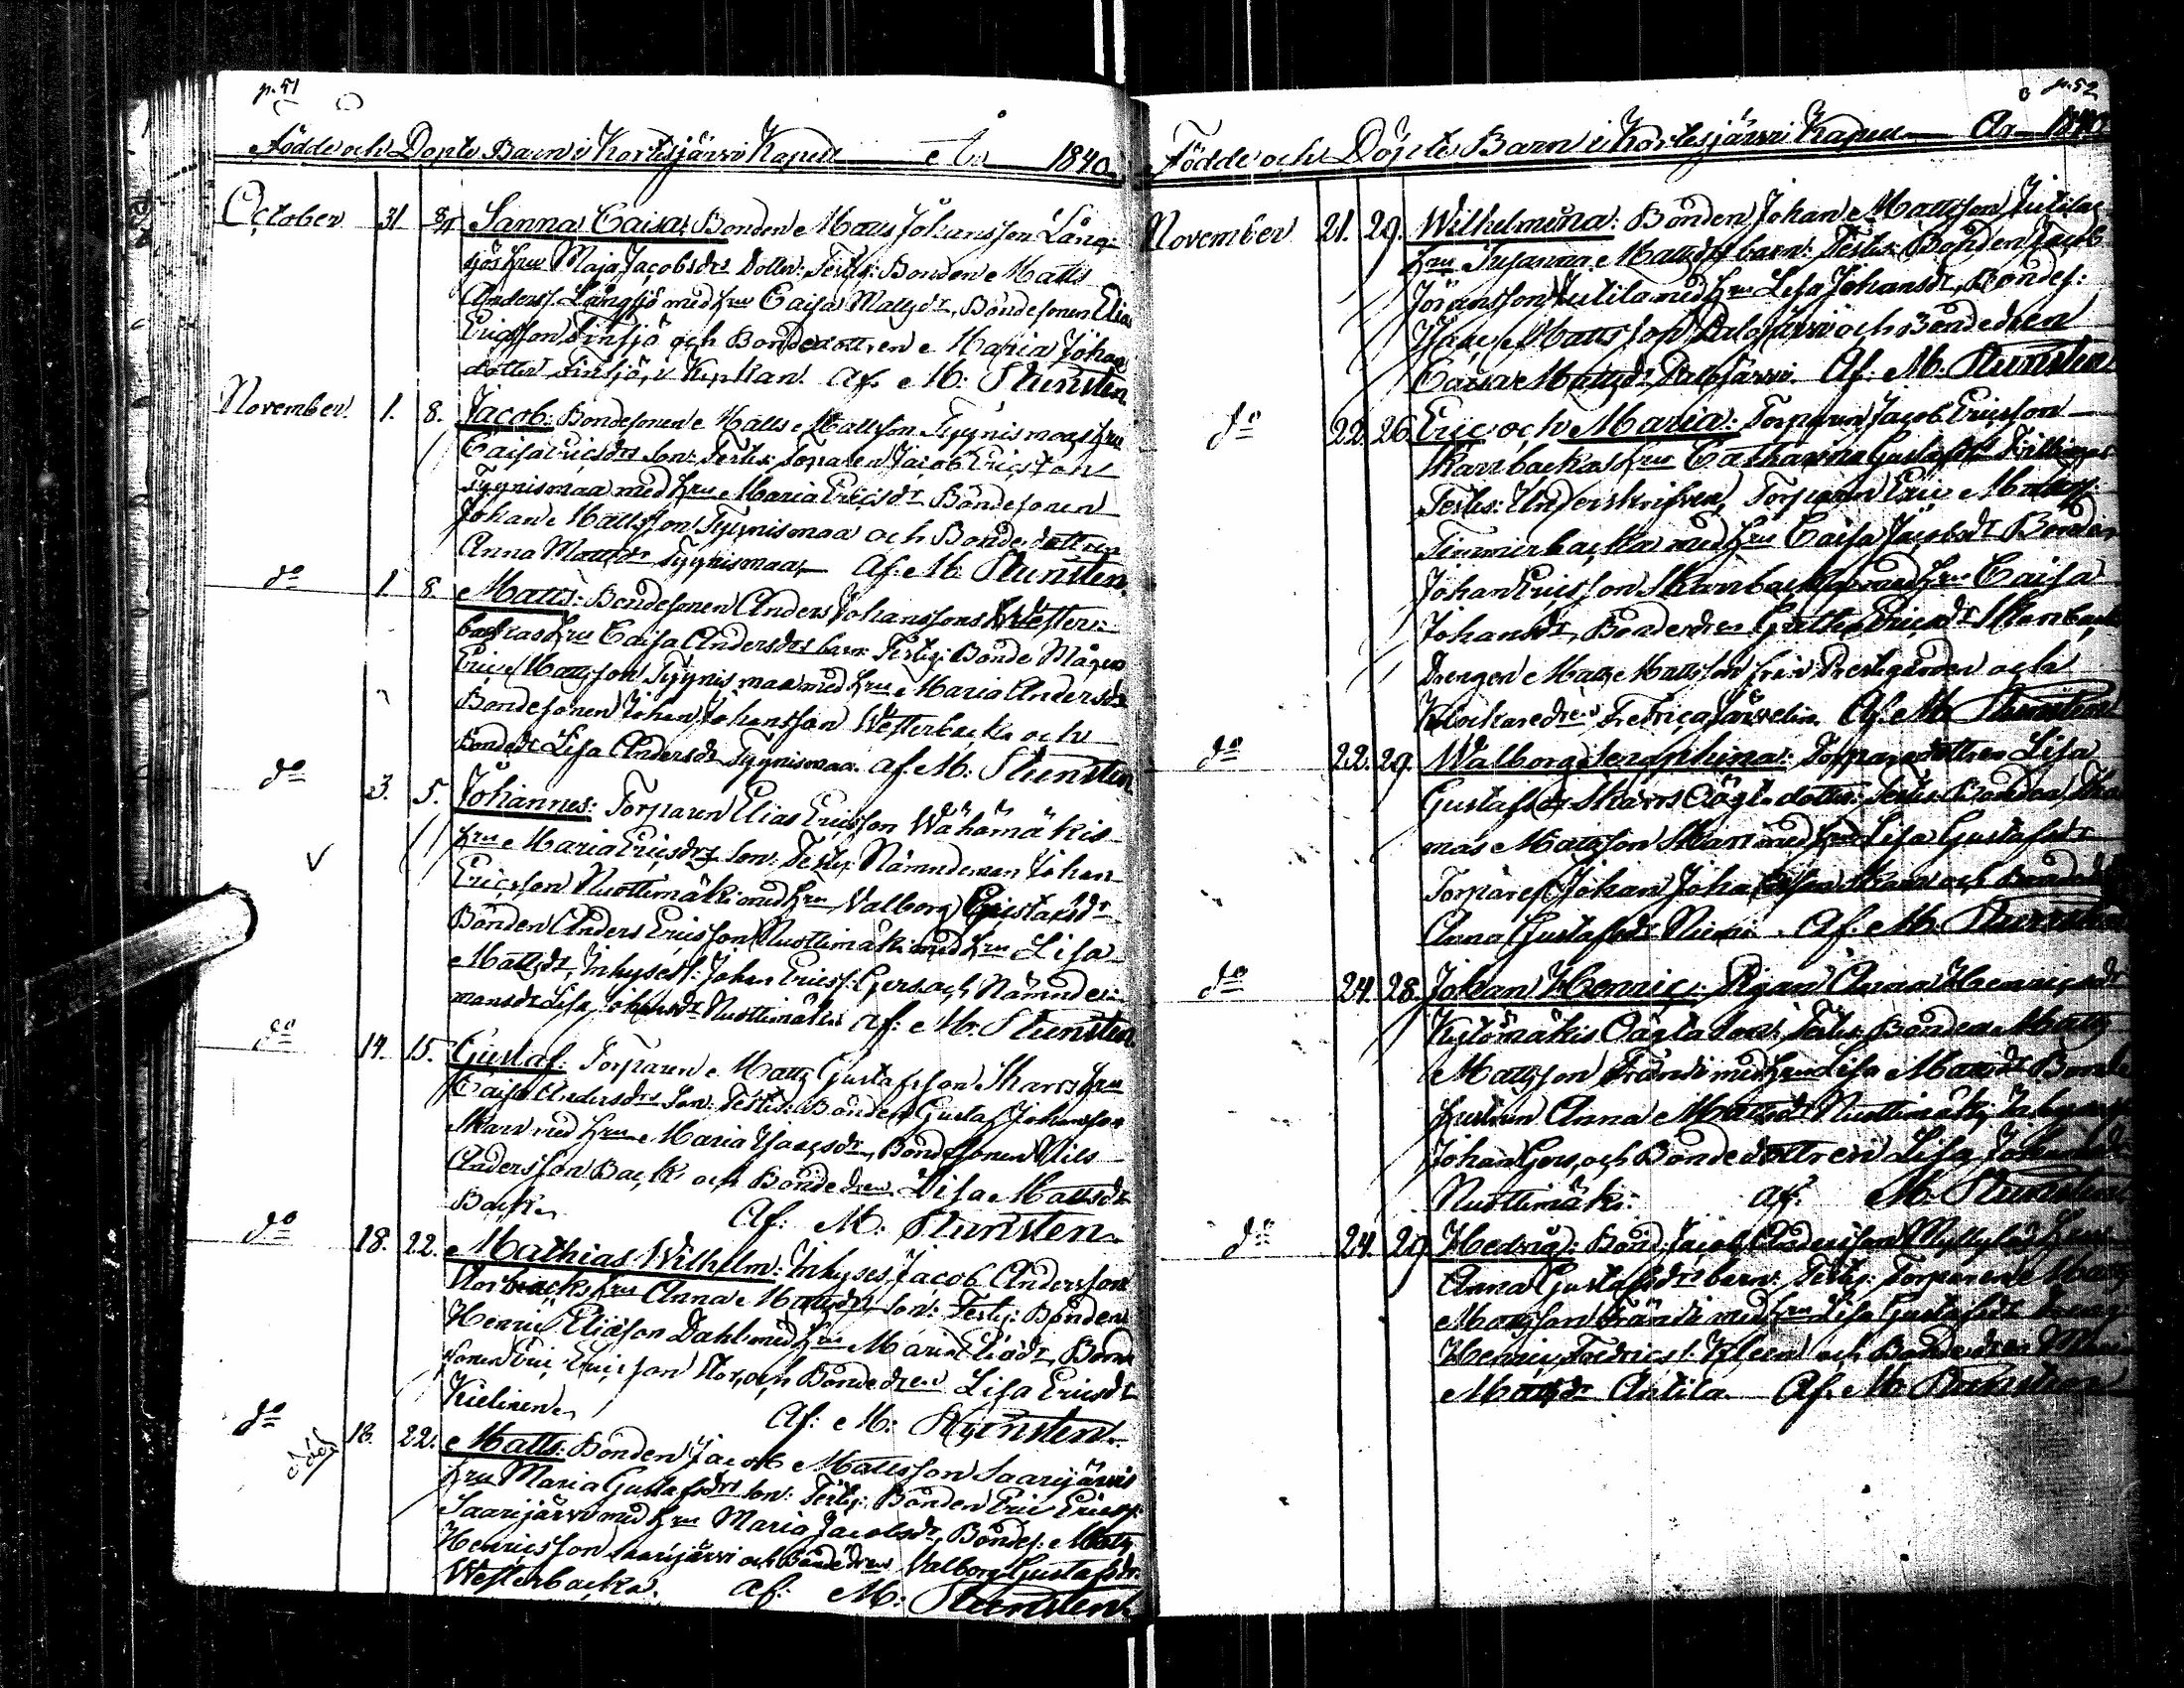 p. 51
Födde och Döpte Barn i Kortesjärvi Kapell År 1840.
October 31. 8/11 Sanna Caisa: Bonden Matts Johansson Lång-
sjös hru Maja Jacobsdrs Dotter: Testes: Bonden Matts
Anderss. Långsjö med hru Caisa Mattsdr, Bondesonen Elias
Ericsson Sintsjö och Bondedottren Maria Johans
dotter Sintsjö, i Kyrkan. Af M: Stunsten
November 1. 8. Jacob: Bondesonen Matts Mattsson Tyynismaas hru
Caisa Ericsdrs Son: Testes: Torparen Jacob Ericsson
Tyynismaa med hru Maria Ericsdr Bondesonen
Johan Mattsson Tyynismaa och Bondedottren
Anna Mattsdr Tyynismaa, Af M: Stunsten.
do 1. 8 Matts: Bondesonen Anders Johanssons Wester-
backas hru Caisa Andersdrs barn: Testes: Bonde Mågen
Eric Mattsson Tyynismaa med hru Maria Andersdr
Bondesonen Johan Johansson Westerbacka och
Bondedr Lisa Andersdr Tyynismaa. af. M: Stunsten
do 3. 5. Johannes: Torparen Elias Ericsson Wähämäkis
hru Maria Ericsdrs Son: Testes: Nämndeman Johan
Ericsson Nuottimäki med hru Valborg Gustafsdr
Bonden Anders Ericsson Nuottimäki med hru Lisa
Mattsdr, Inhyses: Johan Ericss: Gers och Nämnde-
mansdr Lisa Johansdr Nuottimäki af: M: Stunsten
do 14. 15. Gustaf: Torparen Matts Gustafsson Skarrs hru
Caisa Andersdrs Son: Testes: Bonden Gustaf Johansson
Skarr med hru Maria Isacsdr, Bondesonen Nils
Andersson Back och Bondedren Lisa Mattsdr
Back, Af: M: Stunsten.
do 18. 22. Mathias Wilhelm: Inhyses Jacob Andersson
hru Anna Mattsdrs Son: Testes: Bonden
Henric Eliasson Dahl med hru Maria Eliaedr, Bonde
sonen Eric Ericsson och Bondedren Lisa Ericsdr
Kielinen, Af: M: Stunsten.
do död 18. 22. Matts: Bonden Jacob Mattsson Saarijärvis
hru Maria Gustafsdrs Son: Testes: Bonden Eric Ericss:
Saarijärvi med hru Maria Jacobsdr, Bondes: Matts
Henricsson Saarijärvi och Bondedren Valborg Gustafsdr.
Westerbacka. af: M: Stunsten
p. 52
Födde och Döpte Barn i Kortesjärvi Kapell År 1840
November 21. 29. Wilhelmina: Bonden Johan Mattsson Jutilas
hru Susanna Mattsdrs barn: Testes: Bonden Jacob
Jöransson Jutila med hru Lisa Johansdr, Bondes:
Isac Mattsson Palojärvi och Bondedren
Caisa Mattsdr Palojärvi. Af: M. Stunsten
do 22. 26 Eric och Maria: Torparen Jacob Ericsson
Skarrbackas hru Catharina Gustafsdrs Tvillingar
Testes: Underskrifven, Torparen Eric Mattss:
Timmerbacka med hru Caisa Jacobsdr Bonden
Johan Ericsson Skarrbacka med hru Caisa
Johansdr, Bondedren Greta Ericsdr Skarrbacka
Drengen Matts Mattsson från Prestgården och
Klockaredren Fredrica Järvelin. Af. M. Stunsten
do 22. 29. Walborg Seraphina: Torparedottren Lisa
Gustafsdrs Skarrs Oägta dotter: Testes: Bonden Tho
mas Mattsson Skarr med hru Lisa Gustafsdr
Torpares: Johan Johansson Skarr och Bondedr
Anna Gustafsdr Niemi. Af: M. Stunsten
do 24. 28. Johan Henric: Pigan Anna Henricsdr
Kytömäkis Oägta Son: Testes: Bonden Matts
Mattsson Frändi med hru Lisa Mattsdr Bonde
hustrun Anna Mattsdr Nuottimäki, Inhyses
Johan Gers, och Bondedottren Lisa Johansdr
Nuottimäki: af: M. Stunsten
do 24. 29. Hedvig: Bond: Jacob Andersson Myllyläs hru
Anna Gustafsdrs barn: Testes: Torparen Matts
Mattsson Frändi med hru Lisa Gustafsdr Dreng
Henric Fredrics: Kleen och Bondedren Maria
Mattsdr Antila. Af: M. Stunsten